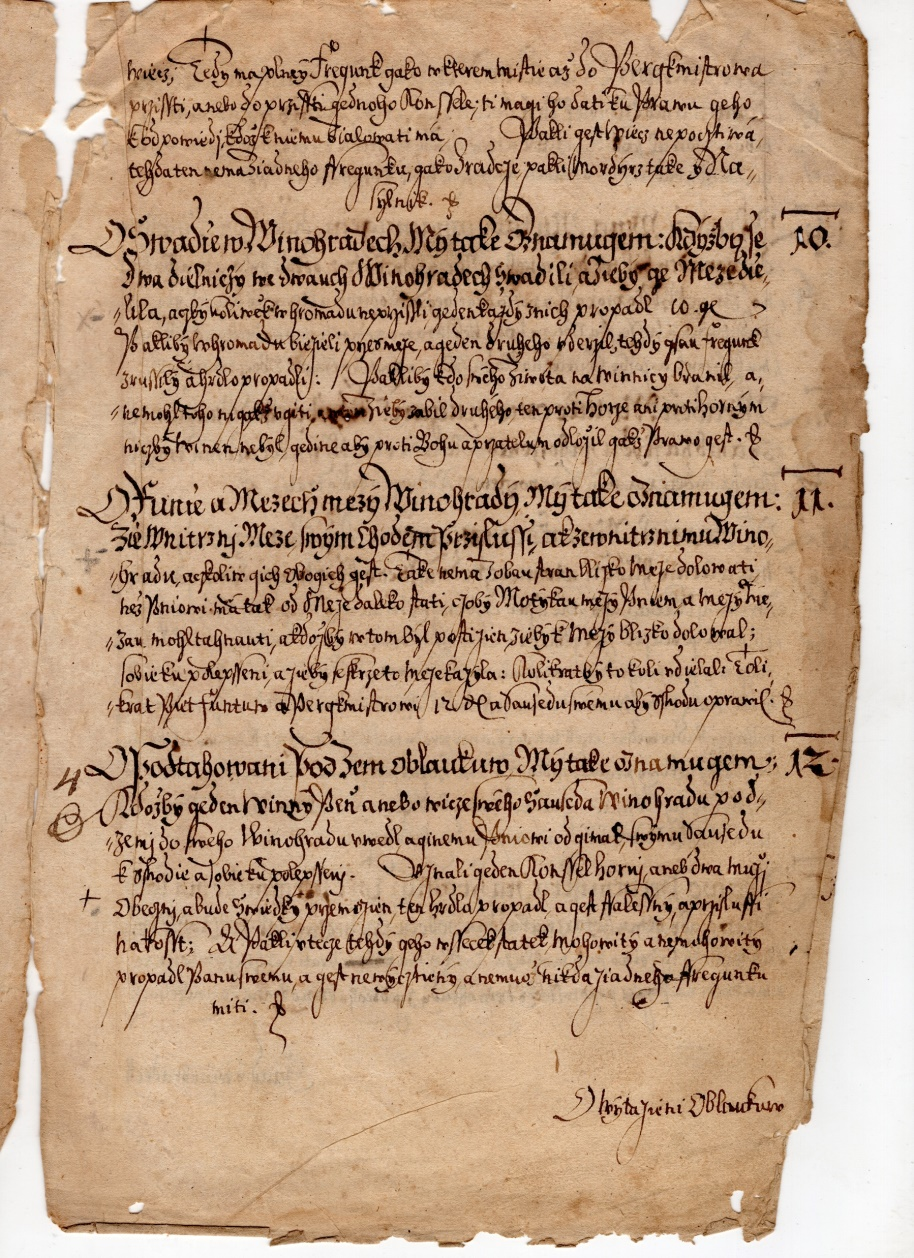 wiecz, Tedy ma plney Fregunk gako w kterem miestie aż do Pergkmistrowa
przissti, anebo do przissti gednoho Konssele; ti magi ho dati ku Prawu geho
k Odpowiedi, kdoż k niemu żialowati má; Pakli gest wiecz nepocztiwá,
tehda ten nema żiadneho ffregunku, gako Zradcze, pakli Mordyrz take y Ná„
sylnik.
O Swadie w Winohradech My take Oznamugem: Kdyżby se 10.
dwa dielniczy we dwauch Winohradech swadili a żieby ge Meze die„
„lila, aczkyli w hromadu neprzissli, geden każdy z nich propadl 10. ge
Pakliby w hromadu bieżieli przes meze, a geden druheho vderzil, tehdy gsau fregunk
zrussily a hrdlo propadli: Pakliby kdo sweho żiwota na winniczy branil, a,
„nemohl toho nigakż vgiti, żieby zabil druheho, ten proti Horze ani proti Hornym
niczby winen nebyl, gedine aby proti Bohu a przatelum odlożil gakż Prawo gest.
O Funie a Mezech mezy Winohrady My take oznamugem: 11.
Żie Wnitrzni Meze swym Chodem Przislussi, ak zewnitrznimu Wino„
„hradu, aczkoliw gich Obogich gest. Take nema z obau stran blizko Meze dolowati
neż Pniowi ma tak od Meze daleko stati, czoby Motykau mezy Pniem a mezy Me„
„zau mohl tahnauti, a kdożby w tom byl postiżien żieby k Mezy blizko dolowal;
sobie ku polepsseni, a żieby skrze to meze kazyla: Kolikratby to koli vdielal: Toli„
„krat Piet funtuw a Pergkmistrowi 12 d a Sausedu swemu aby sskodu oprawil.
O Podtahowani Pod zem oblaukuw My take oznamugem: 12.
4 Kdożby geden winny Peń anebo wicze sweho Sauseda Winohradu pod„
„zemj do sweho Winohradu vwedl a ginemu Pniowi odgimal, swymu Sausedu
k sskodie a sobie ku polepsseni. Vznali geden Konssel horni, aneb dwa mużi
+ Obeczni, a bude swiedky przemożien, ten hrdla propadl a gest ffalessny, a przislussi
na kosst; A Pakli vtecze tehdy geho wssecek statek Mohowity a nemohowity
propadl Panu swemu, a gest newyczstieny a nemuoż nikda żiadneho ffregunku
miti.
O wytażieni Oblaukuw